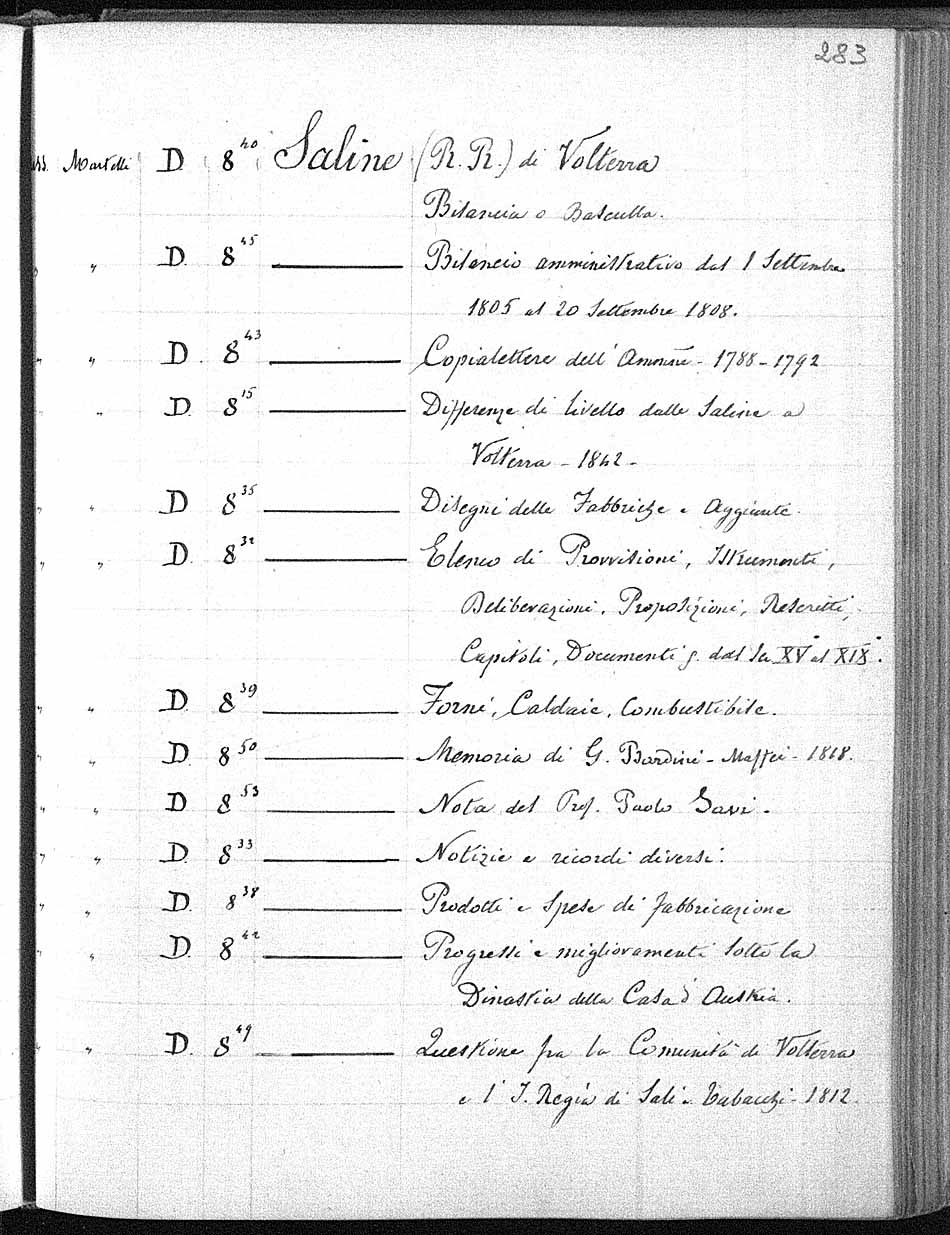 283
ss. Martelli D 8 40 Saline (R. R.) di Volterra
Bilancia o Basculla.
" " D. 8 45 Bilancio amministrativo dal 1 Settembre
1805 al 20 Settembre 1808.
" " D. 8 43 Copialettere dell' Ammne - 1788 - 1792
" " D. 8 15 Differenze di livello dalle Saline a
Volterra - 1842 -
" " D 8 35 Disegni delle Fabbriche e Aggiunte.
" " D 8 32 Elenco di Provvisioni, Istrumenti,
Deliberazioni, Proposizioni, Rescritti,
Capitoli, Documenti dal XV° al XIX°.
" " D 8 39 Forni, Caldaie, Combustibile.
" " D. 8 50 Memoria di G. Bardini - Maffei - 1818.
" " D 8 53 Nota del Prof. Paolo Savi.
" " D. 8 33 Notizie e ricordi diversi.
" " D. 8 38 Prodotti e Spese di fabbricazione
" " D. 8 42 Progressi e miglioramenti sotto la
Dinastia della Casa d' Austria.
" " D. 8 49 Questione fra la Comunità di Volterra
e l' I. Regia di Sali e Tabacchi - 1812.